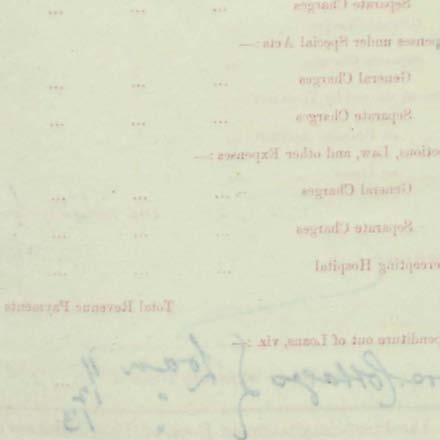 Separate Charges ... ... ...
penses under Special Acts:—
General Charges ... ... ...
Separate Charges ... ... ...
ctions, Law, and other Expenses:—
General Charges ... ... ...
Separate Charges ... ... ...
ercepting Hospital ... ... ...
Total Revenue Payments
penditure out of Loans, viz:—
Cottages { Loan ...